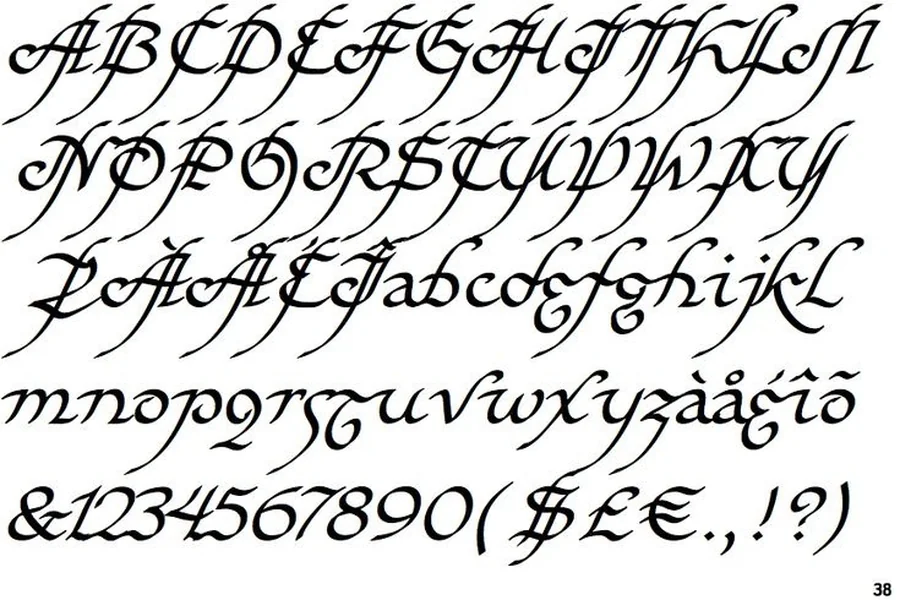 ABCDEFGHIJKLM
NOPQRSTUVWXY
ZÀÅÉÎabcdefghijkl
mnopqrstuvwxyzàåéîõ
&1234567890($£€.,!?)
38